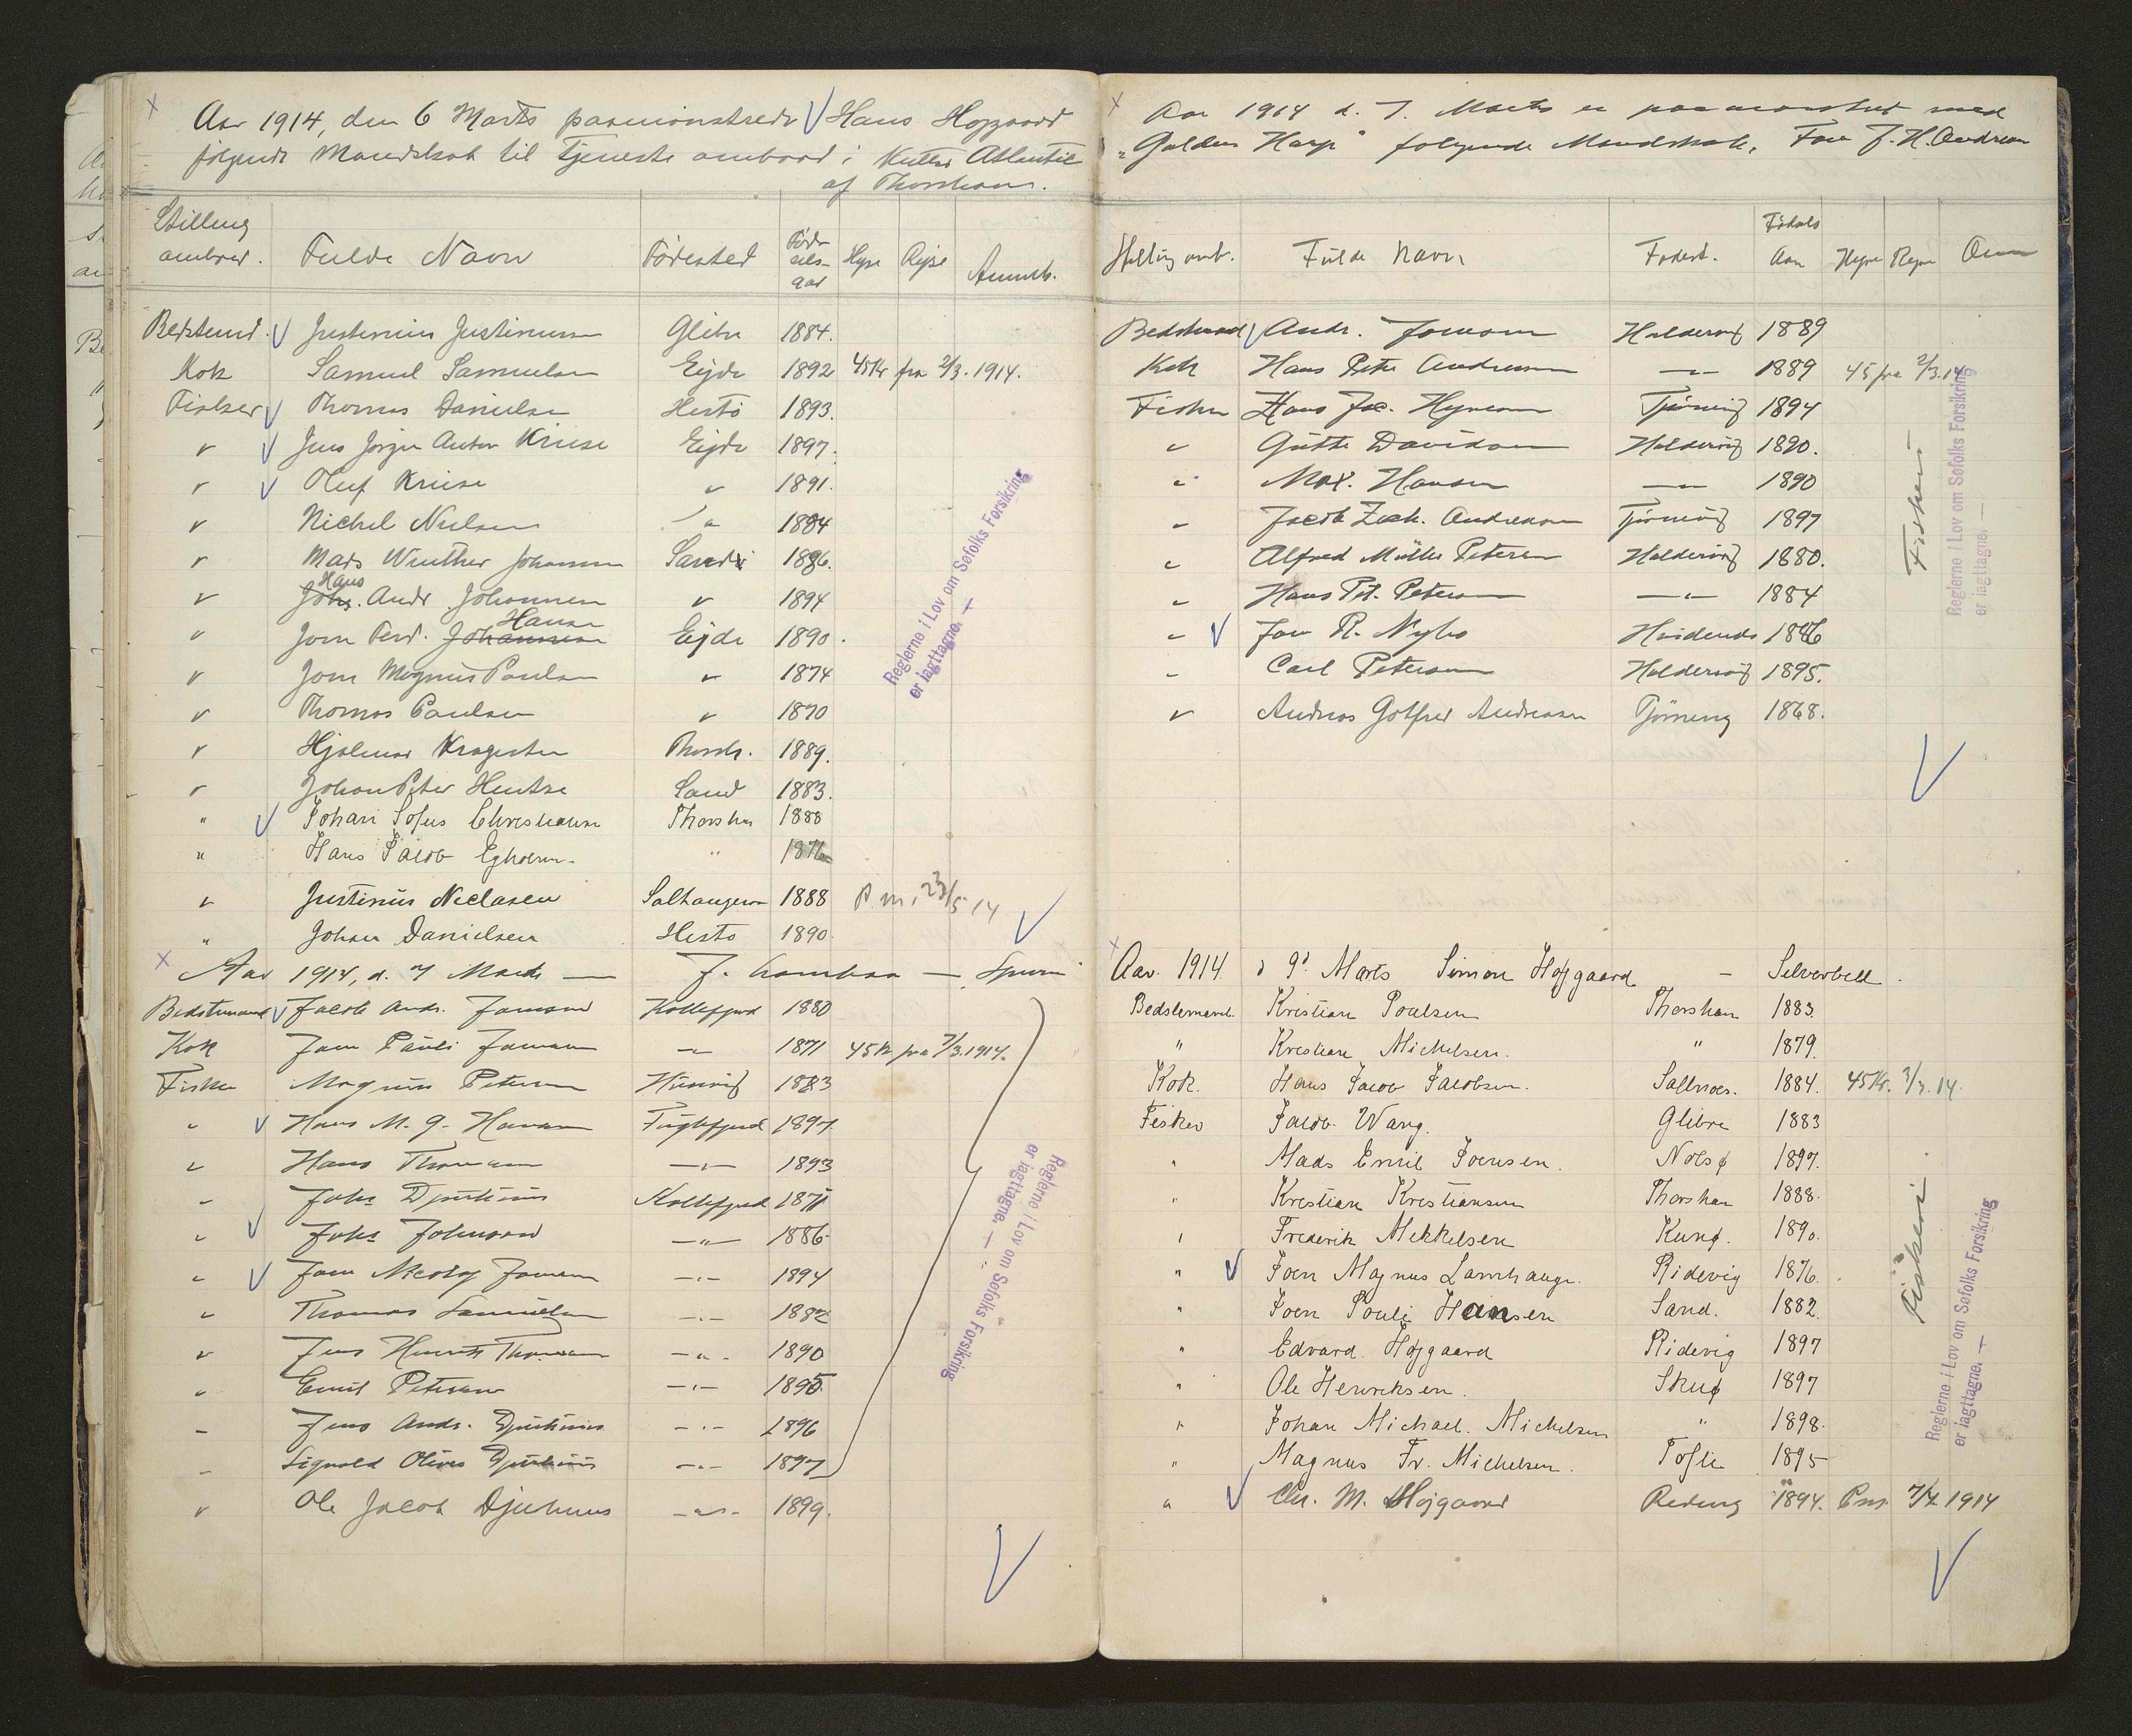 Aar 1914, den 6 Marts paamönstrede Hans Hojgaard
følgende Mandskab til Tjeneste ombord i Kutter Atlantic
af Thorshavn.
Stilling ombord. Fulde Navn Födested Föd- sels- aar Hyre Rejse Anmrk.
Bedstemd. Justinius Justinussen Glibre 1884.
Kok Samuel Samuelsen Ejde 1892 45 Kr fra 2/3. 1914.
Fisker Thomas Danielsen Hestö 1893.
" Jens Jørgen Anton Kruse Ejde 1897.
" Oluf Kruse " 1891.
" Michel Nielsen " 1884
" Mads Winther Johannesen Sand 1886.
" Hans Andr. Johannesen " 1894
" Joen Ferd. Hansen Ejde 1890.
" Joen Magnus Poulsen " 1874
" Thomas Paulsen " 1870
" Hjalmar Kragesteen Thorsh. 1889.
" Johan Peter Hentze Sand 1883.
" Johan Sofus Christiansen Thorshn 1888
" Hans Jacob Egholm. " 1876
" Justinus Niclasen Saltangeren 1888 P. m. 23/5 14
" Johan Danielsen Hesto 1890.
Aar 1914, d. 7 Marts — J. — Spurn
Bedstemand Jacob Andr. Joensen Kollefjord 1880
Kok Joen Pauli Joensen —"— 1871 45 Kr fra 7/3.1914.
Fisker Magnus Petersen 1883
" Hans M. J. Hansen Fuglefjord 1897.
" Hans Thomsen —"— 1893
" Johs Djurhuus Kollefjord 1871
" Johs Johnsen —"— 1886.
" Joen Nicolaj Joensen —"— 1894
" Thomas Samuelsen —"— 1882
" Jens Henrik Thomsen —"— 1890
" Emil Petersen —"— 1895
" Jens Andr. Djurhuus —"— 1896
" Sigvald Oliver Djurhuus —"— 1897
" Ole Jacob Djurhuus —"— 1899.
Reglerne i Lov om Søfolks Forsikring
er iagttagne. —
Reglerne i Lov om Søfolks Forsikring
er iagttagne. —
Aar 1914 d. 7. Marts er paamönstret med
"Golden Harp" følgende Mandskab, Fører J. H. Andreasen
Stilling omb. Fulde Navn Födest. Födsels Aar Hyre Rejse Anm
Bedstemand Andr. Joensen Haldersvig 1889
Kok Hans Peter Andreasen —"— 1889 45 fra 2/3.14
Fisker Hans Jac. Tjörnevig 1894
" Gutte Davidsen Haldersvig 1890.
" Max. Hansen —"— 1890
" Jacob Zach. Andreasen Tjörnevig 1897
" Alfred Müller Petersen Haldersvig 1880.
" Hans Pet. Petersen —"— 1884
" Joen R. Nybo Hvidenæs 1886
" Carl Petersen Haldersvig 1895.
" Andreas Gotfred Andreasen Tjörnevig 1868.
Fiskeri
Reglerne i Lov om Søfolks Forsikring
er iagttagne. —
Aar. 1914. d 9d Marts Simon Højgaard — Selverbell.
Bedstemand. Kristian Poulsen Thorshavn 1883.
" Kristian Michelsen. " 1879.
Kok. Hans Jacob Jacobsen. Saltnæs. 1884. 45 Kr. 3/3. 14.
Fisker Jacob Wang. Glibre 1883
" Mads Emil Joensen. Nolsø 1897.
" Kristian Kristiansen Thorshavn 1888.
" Frederik Mikkelsen Kunø. 1890.
" Joen Magnus Lamhauge. Ridevig 1876.
" Joen Pouli Hansen Sand. 1882.
" Edvard. Højgaard Ridevig 1897
" Ole Henriksen. Skuø 1897
" Johan Michael. Michelsen " 1898.
" Magnus Fr. Michelsen. Tofte 1895
" Chr. M. Højgaard Redevig 1894. Pm. 7/4 1914
Fiskeri
Reglerne i Lov om Søfolks Forsikring
er iagttagne. —